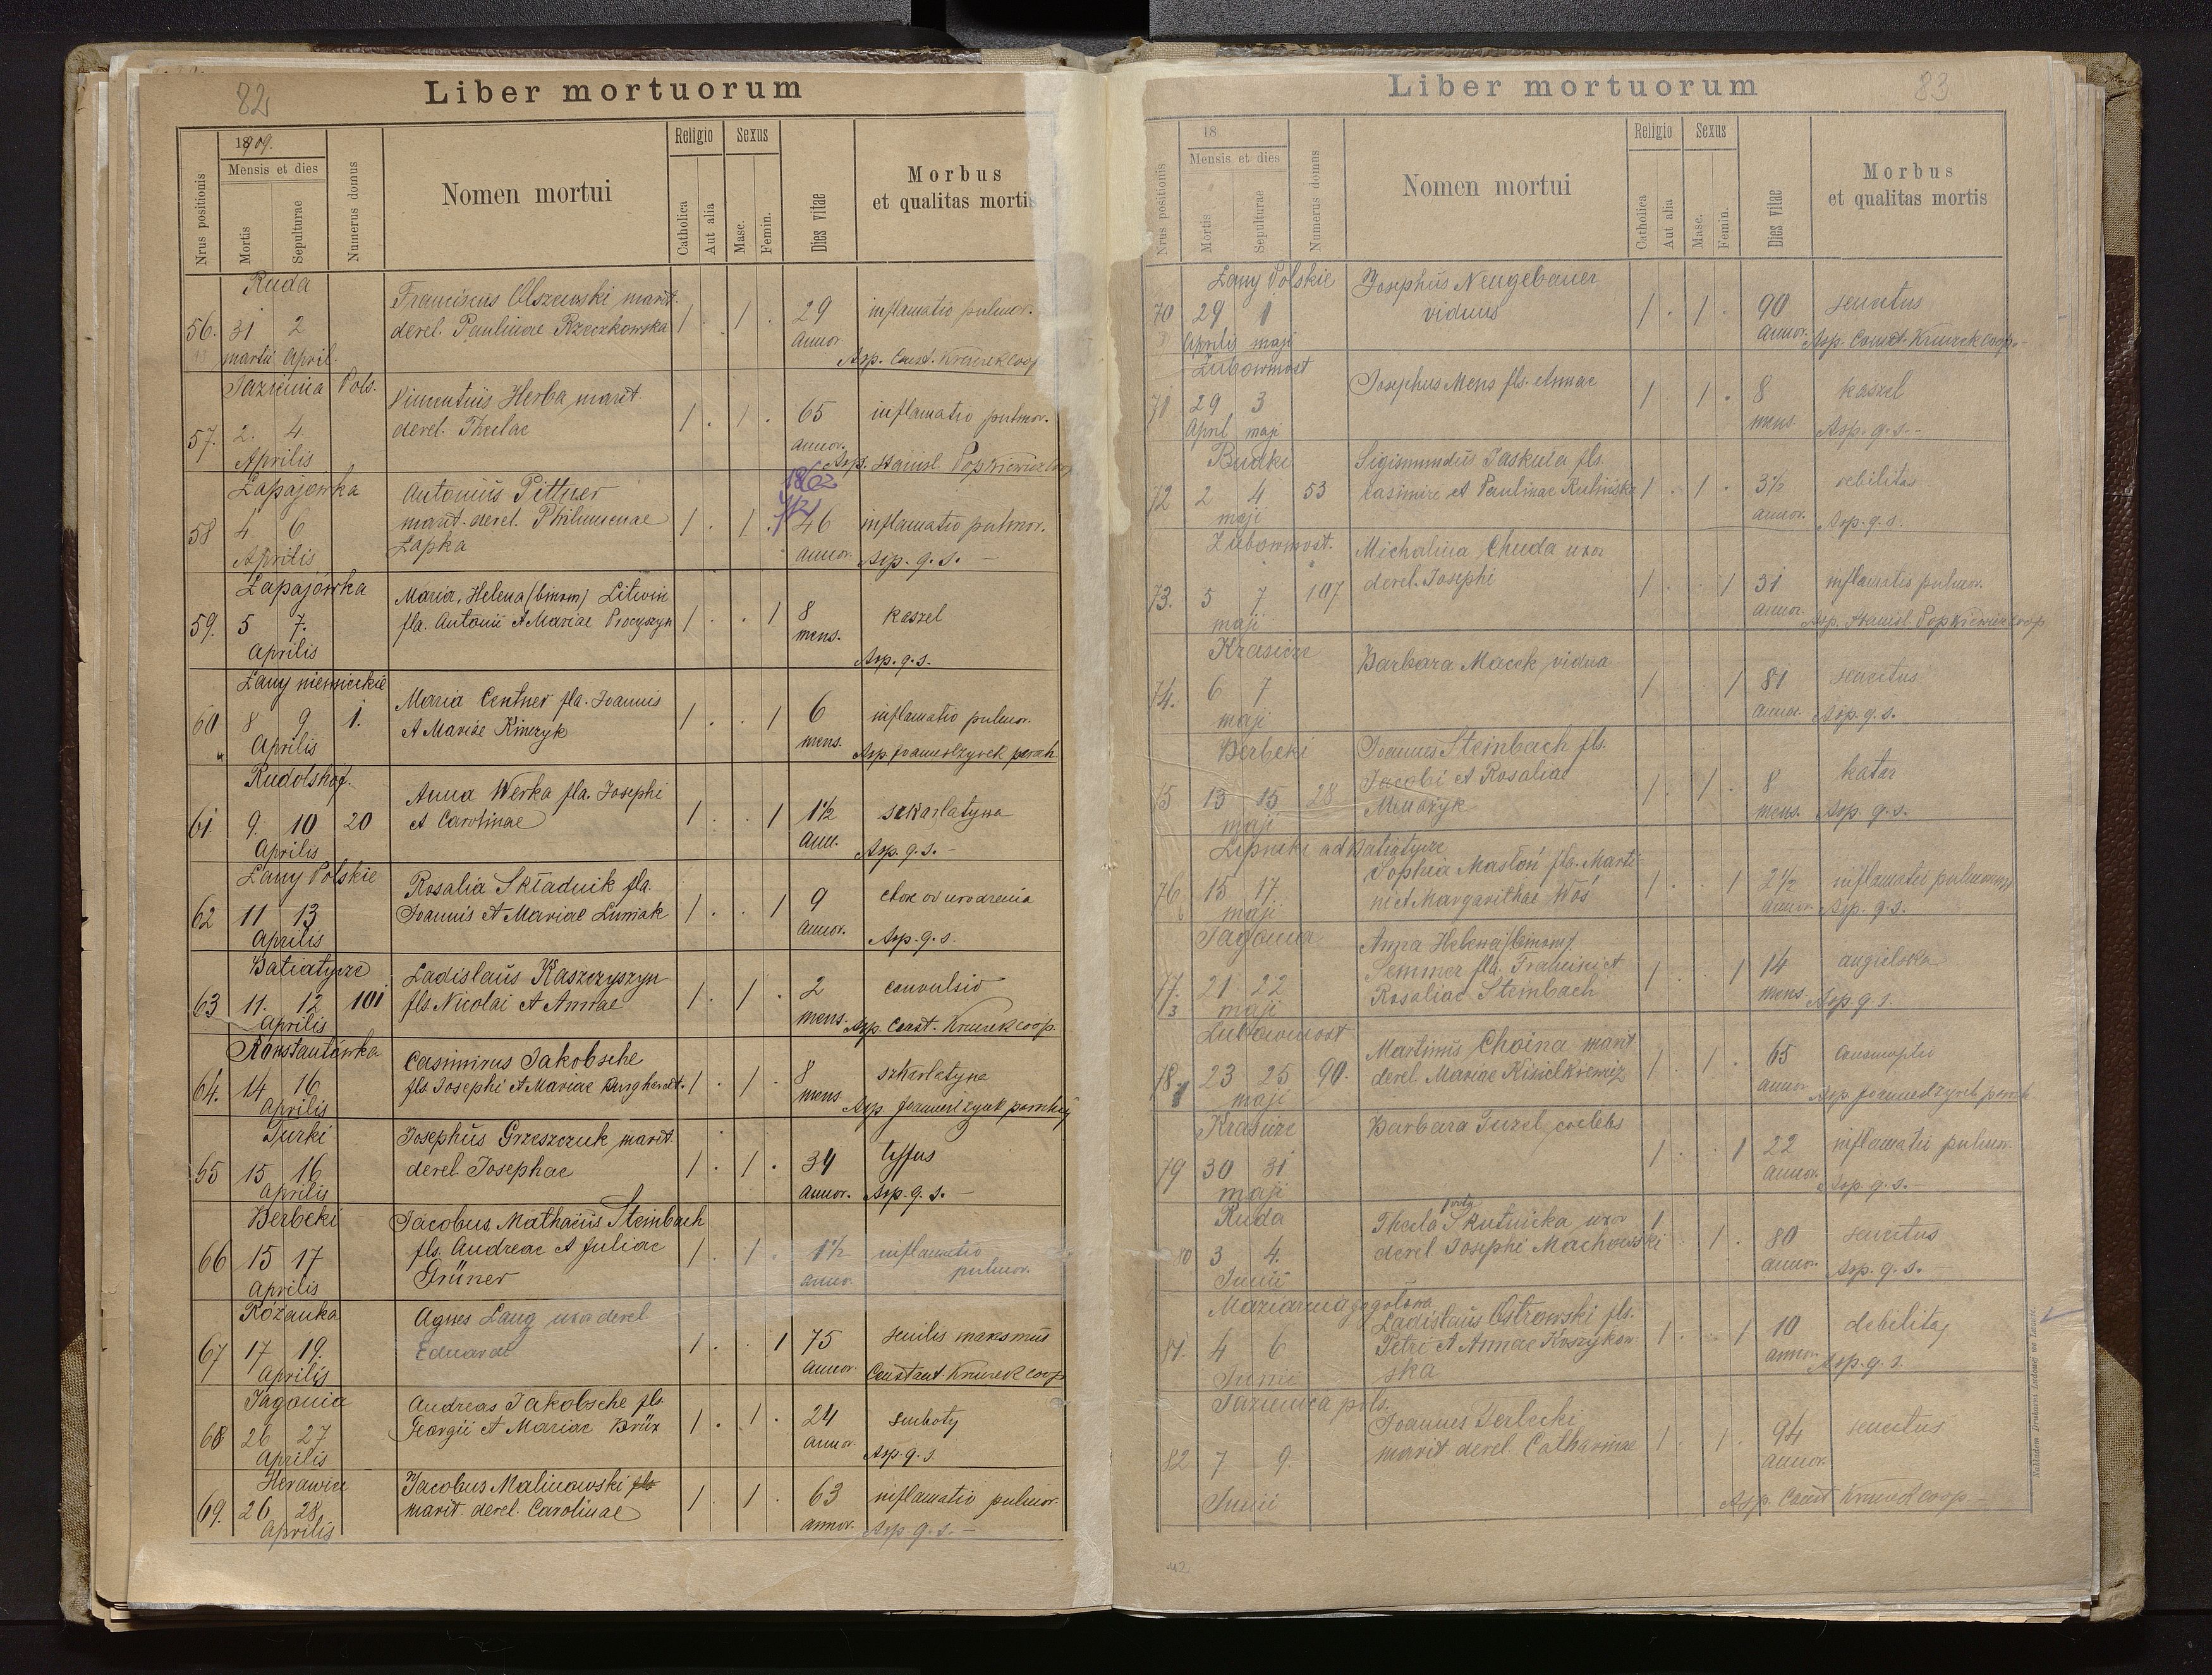 82
Liber mortuorum
1909.
Mensis et dies
Nrus positionis
Mortis
Sepulturae
Numerus domus
Nomen mortui
Religio
Catholica
Aut alia
Sexus
Masc.
Femin.
Dies vitae
Morbus
et qualitas mortis
Ruda
56. 31 2 Franciscus Olszewski marit.
derel. Paulinae Rzeczkowska 1 . 1 . 29 inflamatio pulmor.
martii April. annor. Asp. Const. Krturek coop
Jazienica Pols.
57. 2. 4. Vincentius Herba marit
derel. Theclae 1 . 1 . 65 inflamatio pulmor.
Aprilis annor. Asp. Stanisl. Popkiewicz coop
Łapajówka 1862
58 4 6 Antonius Pittner
marit. derel. Philumenae 1 . 1 . 46 inflamatio pulmor.
Łapka
Aprilis annor. Asp. q. s. –
Łapajówka
59. 5 7. Maria, Helena (binom) Litwin
fla. Antonii et Mariae Procyszyn 1 . . 1 8 kaszel
Aprilis mens. Asp. q. s.
Łany niemieckie
60 8 9. 1. Maria Centner fla. Joannis
et Mariae Kinczyk 1 . . 1 6 inflamatio pulmor.
Aprilis mens. Asp. Joannes Czyrek paroch
Rudolshof.
61. 9. 10 20 Anna Werka fla. Josephi
et Carolinae 1 . . 1 1½ szkarlatyna
Aprilis ann. Asp. q. s. –
Łany Polskie
62 11 13 Rosalia Składnik fla.
Joannis et Mariae Luniak 1 . . 1 9 chore od urodzenia
Aprilis annor. Asp. q. s.
Batiatycze
63 11. 12 101 Ladislaus Kaszczyszyn
fls. Nicolai et Annae 1 . 1 . 2 convulsio
Aprilis mens. Asp. Const. Krturek coop.
Konstantówka
64. 14 16 Casimirus Jakobsche
fls. Josephi et Mariae Burghardt. 1 . 1 . 8 szkarlatyna
Aprilis mens Asp. Joannes Czyrek paroch
Turki
65 15 16 Josephus Grzeszczuk marit.
derel. Josephae 1 . 1 . 34 tyfus
Aprilis annor. Asp. q. s. –
Berbeki
66 15 17 Jacobus Mathaeus Steinbach
fls. Andreae et Juliae 1 . 1 . 1½ inflamatio
Grüner annor. pulmor.
Aprilis
Różanka
67 17 19. Agnes Lang uxor derel.
Eduardi 1 . . 1 75 senilis maksmus
Aprilis annor. Constant. Krturek coop
Jagonia
68 26 27 Andreas Jakobsche fls.
Georgii et Mariae Brüx 1 . 1 . 24 suchoty
Aprilis annor. Asp. q. s.
69. 26 28 Jacobus Malinowski fls
marit. derel. Carolinae 1 . 1 . 63 inflamatio pulmor.
Aprilis annor. Asp. q. s. –
83
Liber mortuorum
18
Mensis et dies
Nrus positionis
Mortis
Sepulturae
Numerus domus
Nomen mortui
Religio
Catholica
Aut alia
Sexus
Masc.
Femin.
Dies vitae
Morbus
et qualitas mortis
Łany Polskie
70 29 1 Josephus Neugebauer
viduus 1 . 1 . 90 senectus
Aprilis maji annor. Asp. Const. Krturek coop. –
Żubowmost
71 29 3 Josephus Mens fls. Annae 1 . 1 . 8 kaszel
April maji mens. Asp. q. s. –
Budki
72 2 4 53 Sigismundus Jaskula fls.
Casimiri et Paulinae Rulińska 1 . 1 . 3½ debilitas
maji annor. Asp. q. s.
Żubowmost.
73. 5 7 107 Michalina Chuda uxor
derel. Josephi 1 . . 1 31 inflamatio pulmor.
maji annor. Asp. Stanisl Popkiewicz coop
Krasicze
74. 6 7 Barbara Macek vidua 1 . . 1 81 senectus
maji annor. Asp. q. s.
Berbeki
75 13 15 28 Joannes Steinbach fls.
Jacobi et Rosaliae 1 . 1 . 8 katar
maji mens. Asp. q. s.
Lipniki ad Batiatycze
76 15 17. Sophia Masłoń fla. Marti
ni et Margarithae Woś 1 . . 1 2½ inflamatio pulmonum
maji annor. Asp. q. s.
Jagonia
77. 21 22 Anna Helena (binom).
Semmer fla. Francisci et
Rosaliae Steinbach 1 . . 1 14 angielska
maji mens Asp. q. s.
Żubowmost
78 23 25 90. Martinus Choina marit.
derel. Mariae 1 . 1 . 65
maji annor Asp. Joannes Czyrek paroch
Krasicze
79 30 31 Barbara Tuzel coelebs 1 . . 1 22 inflamatio pulmor.
maji annor. Asp. q. s. –
Ruda
80 3 4. Thecla Skutnicka uxor
derel. Josephi Machowski 1 . 1 . 80 senectus
Junii annor. Asp. q. s. –
Maziarnia
81. 4 6 Ladislaus Ostrowski fls.
Petri et Annae Koszykow
ska 1 . . 1 10 debilitas
Junii annor. Asp. q. s.
Jazienica pols.
82 7 9. Joannes Terlecki
marit. derel. Catharinae 1 . 1 . 94 senectus
Junii annor.
Asp. Const Krturek coop –
Nakładem Drukarni Ludowej we Lwowie.
42